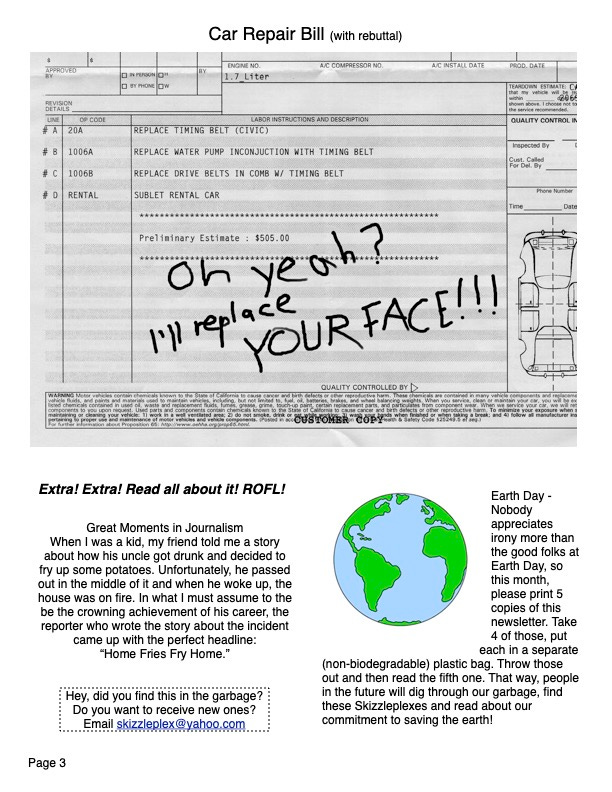 Car Repair Bill (with rebuttal)
$ $
APPROVED BY
IN PERSON
BY PHONE
BY
ENGINE NO. A/C COMPRESSOR NO. A/C INSTALL DATE PROD. DATE
1.7 Liter
TEARDOWN ESTIMATE:
that my vehicle will be
within
shown above. I choose not to
the service recommended.
REVISION DETAILS
LINE OP CODE LABOR INSTRUCTIONS AND DESCRIPTION
QUALITY CONTROL
# A 20A REPLACE TIMING BELT (CIVIC)
# B 1006A REPLACE WATER PUMP INCONJUCTION WITH TIMING BELT
# C 1006B REPLACE DRIVE BELTS IN COMB W/ TIMING BELT
# D RENTAL SUBLET RENTAL CAR
Inspected By
Cust. Called
For Del. By
Phone Number
Time Date
Preliminary Estimate : $505.00
Oh yeah?
I'll replace
YOUR FACE!!!
QUALITY CONTROLLED BY
CUSTOMER COPY
Extra! Extra! Read all about it! ROFL!
Great Moments in Journalism
When I was a kid, my friend told me a story
about how his uncle got drunk and decided to
fry up some potatoes. Unfortunately, he passed
out in the middle of it and when he woke up, the
house was on fire. In what I must assume to the
be the crowning achievement of his career, the
reporter who wrote the story about the incident
came up with the perfect headline:
“Home Fries Fry Home.”
Hey, did you find this in the garbage?
Do you want to receive new ones?
Email skizzleplex@yahoo.com
Earth Day -
Nobody
appreciates
irony more than
the good folks at
Earth Day, so
this month,
please print 5
copies of this
newsletter. Take
4 of those, put
each in a separate
(non-biodegradable) plastic bag. Throw those
out and then read the fifth one. That way, people
in the future will dig through our garbage, find
these Skizzleplexes and read about our
commitment to saving the earth!
Page 3